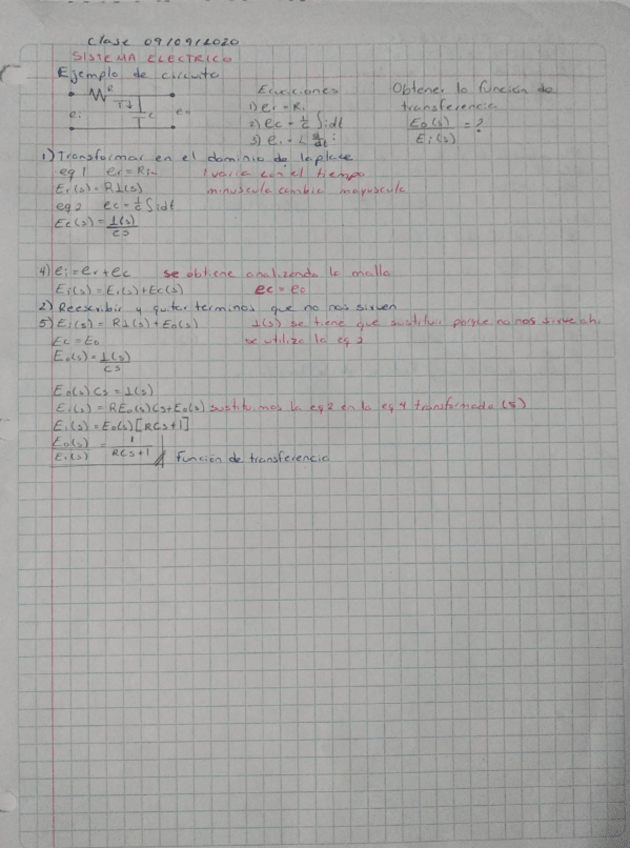 Clase 09/09/2020
SISTEMA ELECTRICO
Ejemplo de circuito
R
ei
C
Ecuaciones
1) er = Ri
2) ec = 1/c ∫idt
Obtener la función de
transferencia
Eo(s)/Ei(s) = ?
1) Transformar en el dominio de laplace
eq 1 er = Ri
I varia con el tiempo
Er(s) = RI(s)
minuscula cambia mayuscula
eq 2 ec = 1/c ∫idt
Ec(s) = I(s)/cs
4) ei = er + ec se obtiene analizando la malla
Ei(s) = Er(s) + Ec(s) ec = eo
2) Reescribir y quitar terminos que no nos sirven
5) Ei(s) = RI(s) + Eo(s) I(s) se tiene que sustituir porque no nos sirve
Ec = Eo se utiliza la eq 2
Eo(s) = I(s)/Cs
Eo(s) Cs = I(s)
Ei(s) = REo(s)Cs + Eo(s) sustituimos la eq 2 en la eq 4 transformada (s)
Ei(s) = Eo(s) [RCs+1]
Eo(s)/Ei(s) = 1/RCs+1 Función de transferencia